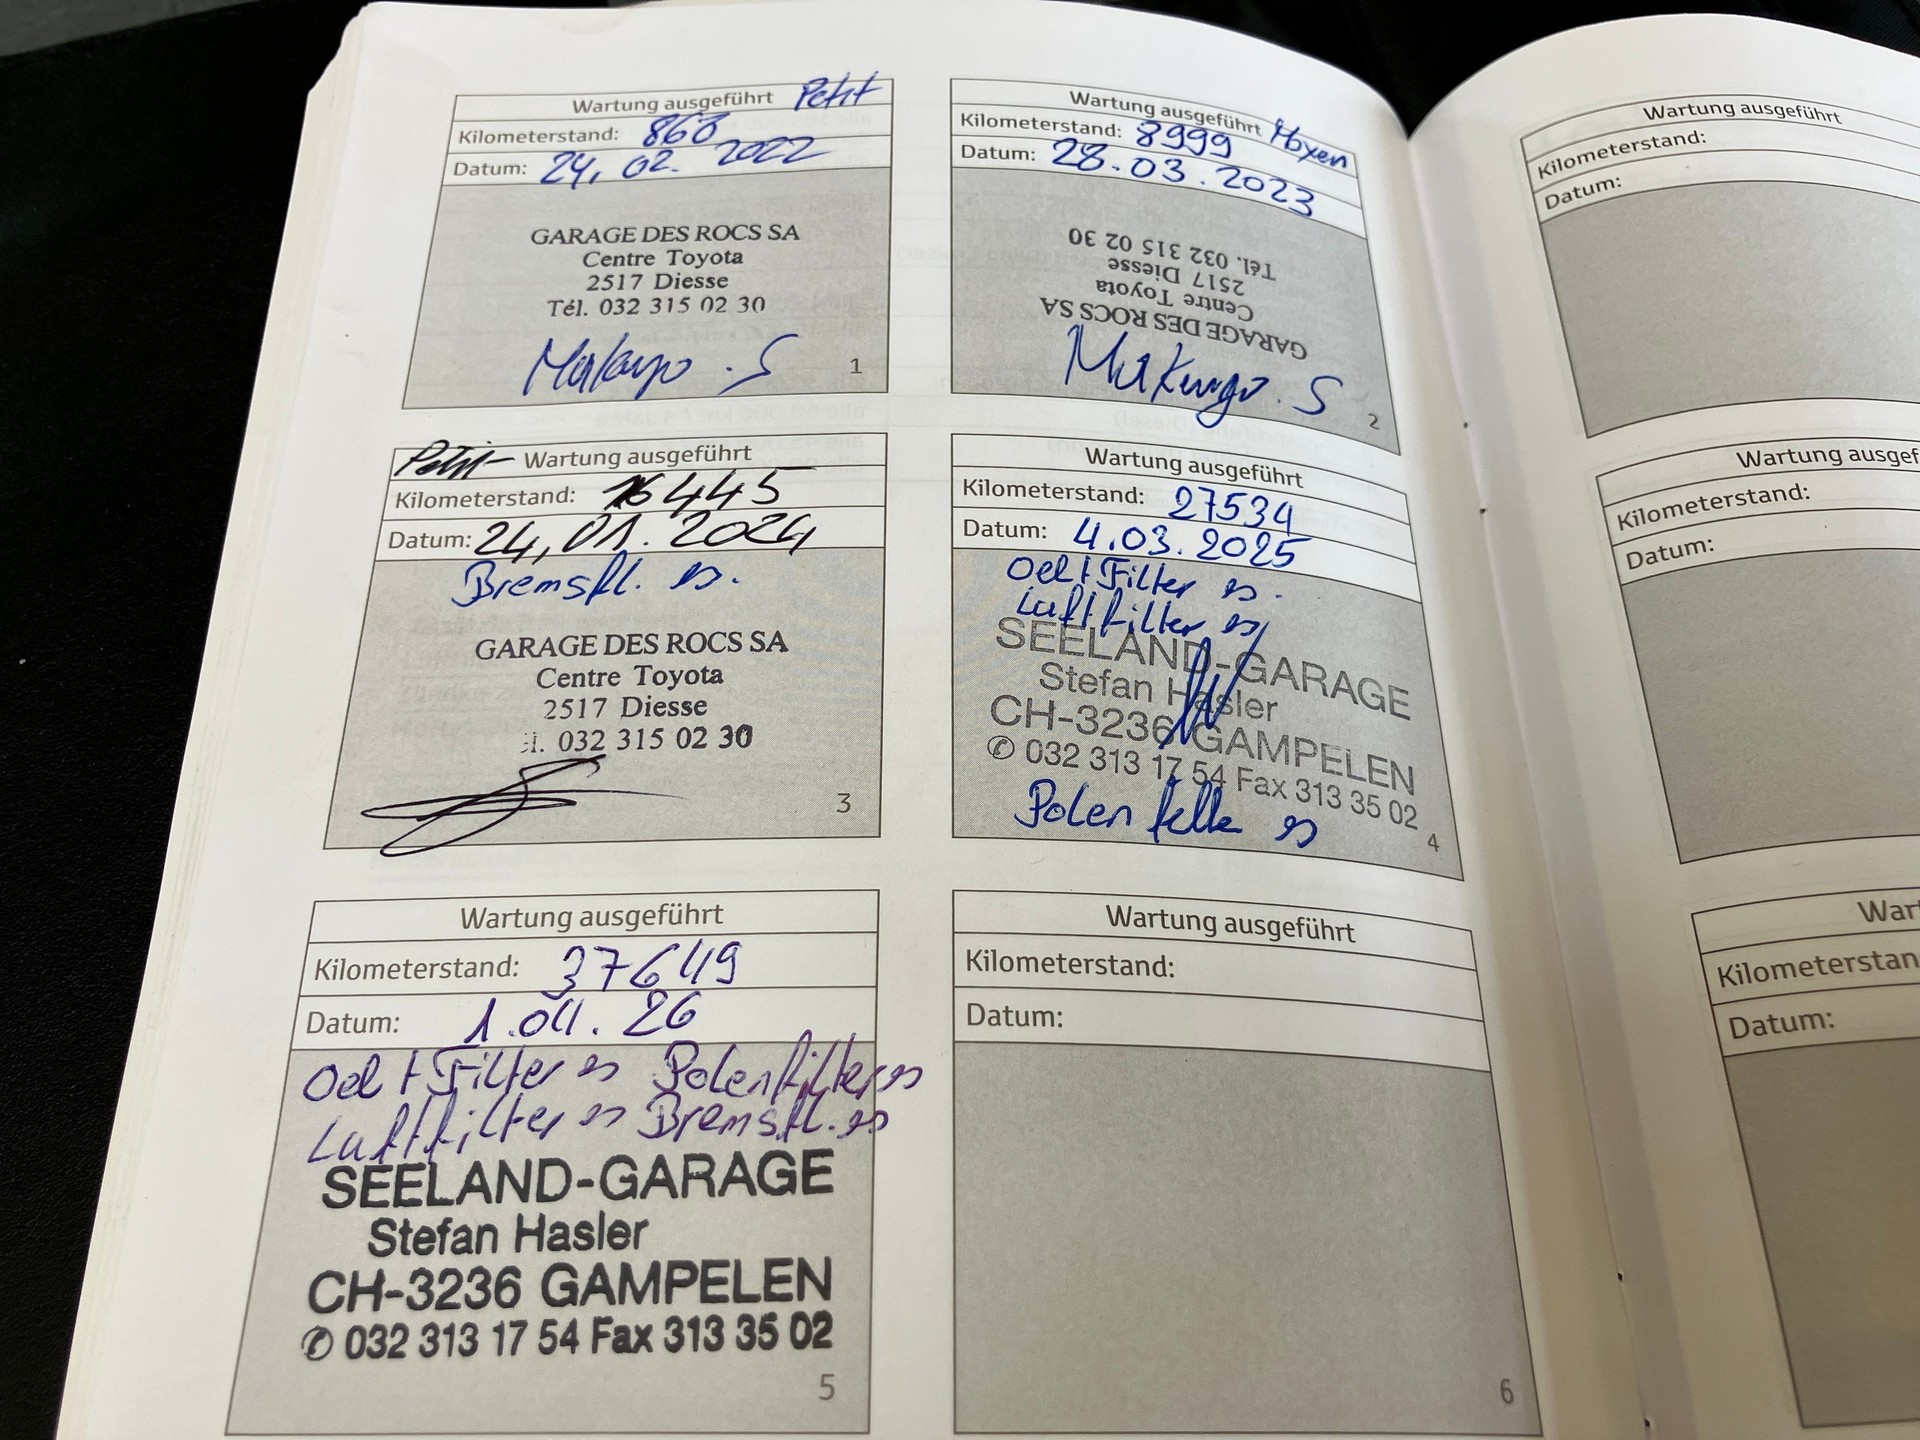 Wartung ausgeführt Petit
Kilometerstand: 863
Datum: 24.02.2022
GARAGE DES ROCS SA
Centre Toyota
2517 Diesse
Tél. 032 315 02 30
1
Wartung ausgeführt Moyen
Kilometerstand: 8999
Datum: 28.03.2023
GARAGE DES ROCS SA
Centre Toyota
2517 Diesse
Tél. 032 315 02 30
2
Petit Wartung ausgeführt
Kilometerstand: 16445
Datum: 24.01.2024
Bremsfl. es.
GARAGE DES ROCS SA
Centre Toyota
2517 Diesse
032 315 02 30
3
Wartung ausgeführt
Kilometerstand: 27534
Datum: 4.03.2025
Oel + Filter es.
Luftfilter es
SEELAND-GARAGE
Stefan Hasler
CH-3236 GAMPELEN
✆ 032 313 17 54 Fax 313 35 02
Polen es
4
Wartung ausgeführt
Kilometerstand: 37649
Datum: 1.04.26
Oel + Filter es Polenfilter es
Luftfilter es Bremsfl. es
SEELAND-GARAGE
Stefan Hasler
CH-3236 GAMPELEN
✆ 032 313 17 54 Fax 313 35 02
5
Wartung ausgeführt
Kilometerstand:
Datum:
6
Wartung ausgeführt
Kilometerstand:
Datum:
Wartung ausgef
Kilometerstand:
Datum:
Wart
Kilometerstan
Datum: